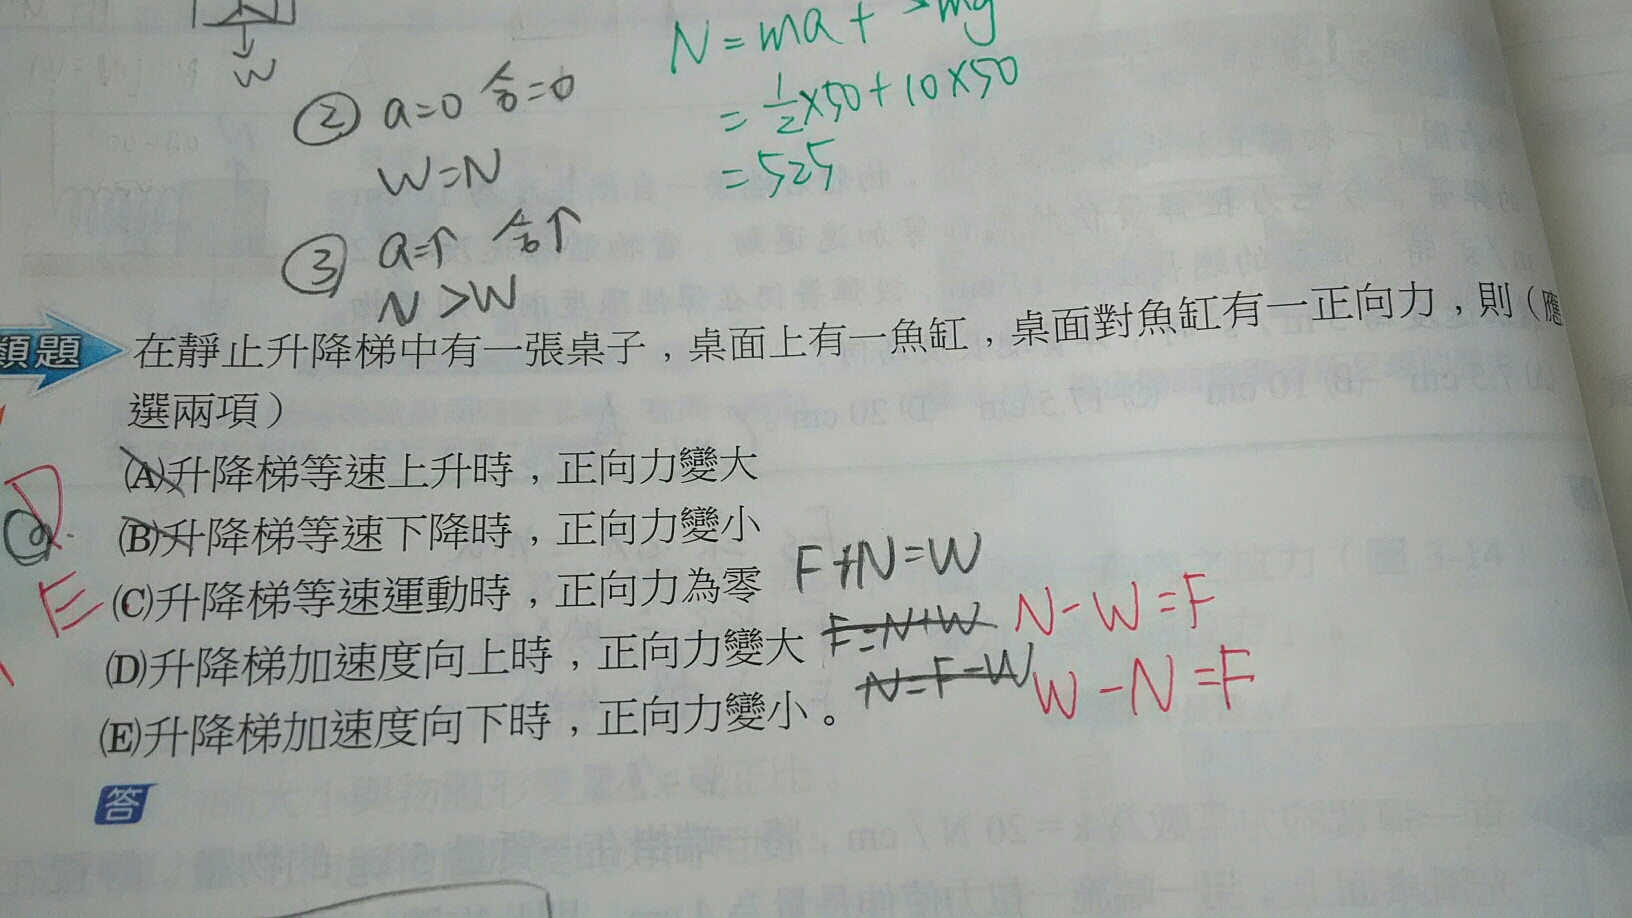 W
② a=0 合=0
W=N
③ a=↑ 合↑
N>W
N=ma+mg
=½×50+10×50
=525
類題 在靜止升降梯中有一張桌子，桌面上有一魚缸，桌面對魚缸有一正向力，則（應
選兩項）
(A)升降梯等速上升時，正向力變大
(B)升降梯等速下降時，正向力變小
(C)升降梯等速運動時，正向力為零 F+N=W
(D)升降梯加速度向上時，正向力變大 F=N+W N-W=F
(E)升降梯加速度向下時，正向力變小。 N=F-W W-N=F
D
E
答